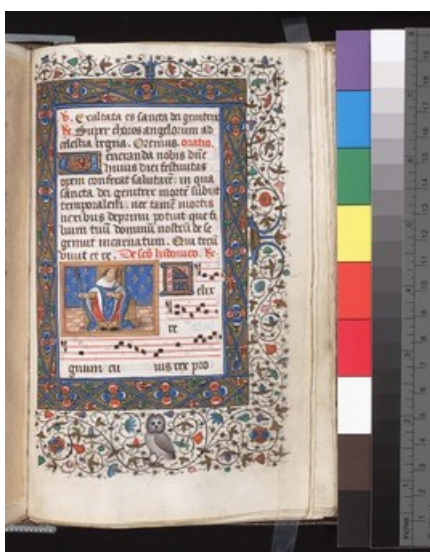 V. Exaltata es sancta dei genitrix
R. Super choros angelorum ad
celestia regna. Oremus. oratio.
Veneranda nobis dne
huius diei festiuitas
opem conferat salutarē: in qua
sancta dei genitrix mortē subijt
temporalem: nec tamē mortis
nexibus deprimi potuit que fi
lium tuū dominū nostrū de se
genuit incarnatum. Qui tecū
viuit et re. De scō ludouico. R.
Felix
re
gnum cu ius rex pro